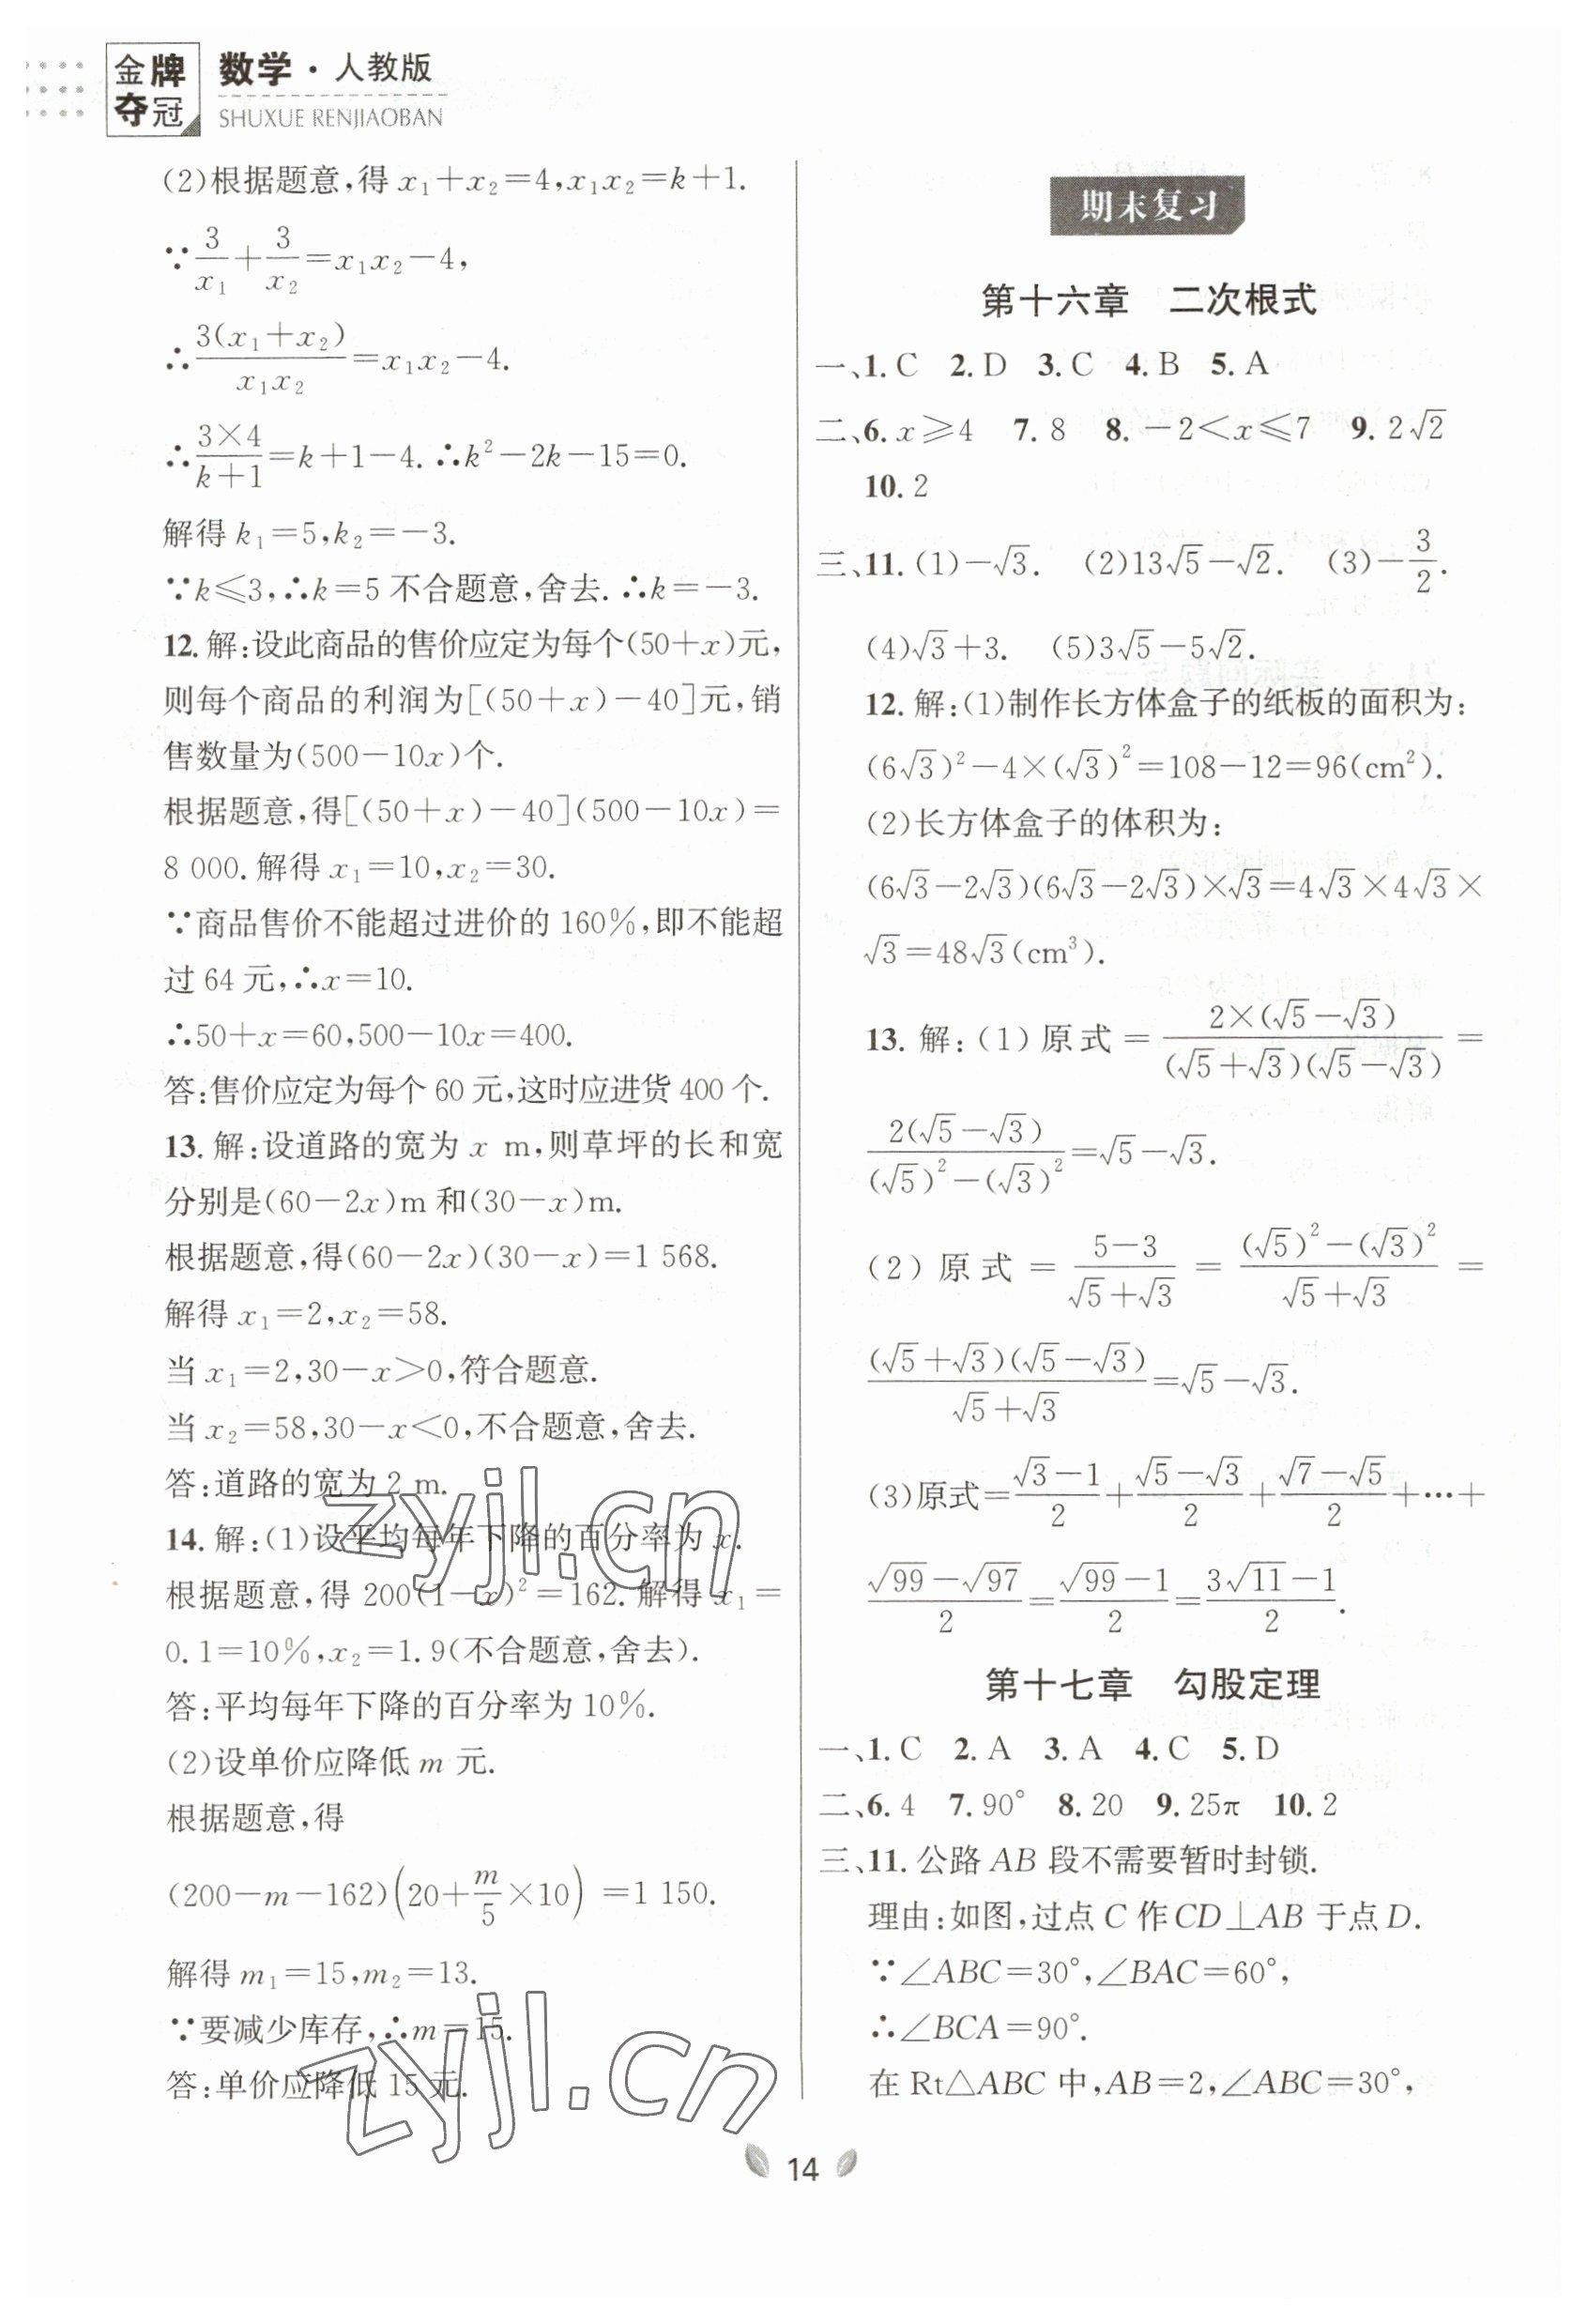 金牌夺冠
数学·人教版
SHUXUE RENJIAOBAN
(2)根据题意,得 x₁+x₂=4,x₁x₂=k+1.
∵3/x₁+3/x₂=x₁x₂-4,
∴3(x₁+x₂)/x₁x₂=x₁x₂-4.
∴3×4/(k+1)=k+1-4.∴k²-2k-15=0.
解得 k₁=5,k₂=-3.
∵k≤3,∴k=5 不合题意,舍去.∴k=-3.
12.解:设此商品的售价应定为每个(50+x)元,
则每个商品的利润为[(50+x)-40]元,销
售数量为(500-10x)个.
根据题意,得[(50+x)-40](500-10x)=
8 000.解得 x₁=10,x₂=30.
∵商品售价不能超过进价的 160%,即不能超
过 64 元,∴x=10.
∴50+x=60,500-10x=400.
答:售价应定为每个 60 元,这时应进货 400 个.
13.解:设道路的宽为 x m,则草坪的长和宽
分别是(60-2x)m 和(30-x)m.
根据题意,得(60-2x)(30-x)=1 568.
解得 x₁=2,x₂=58.
当 x₁=2,30-x>0,符合题意.
当 x₂=58,30-x<0,不合题意,舍去.
答:道路的宽为 2 m.
14.解:(1)设平均每年下降的百分率为 x.
根据题意,得 200(1-x)²=162.解得 x₁=
0.1=10%,x₂=1.9(不合题意,舍去).
答:平均每年下降的百分率为 10%.
(2)设单价应降低 m 元.
根据题意,得
(200-m-162)(20+m/5×10)=1 150.
解得 m₁=15,m₂=13.
∵要减少库存,∴m=15.
答:单价应降低 15 元.
期末复习
第十六章 二次根式
一、1.C 2.D 3.C 4.B 5.A
二、6.x≥4 7.8 8.-2<x≤7 9.2√2
10.2
三、11.(1)-√3. (2)13√5-√2. (3)-3/2.
(4)√3+3. (5)3√5-5√2.
12.解:(1)制作长方体盒子的纸板的面积为:
(6√3)²-4×(√3)²=108-12=96(cm²).
(2)长方体盒子的体积为:
(6√3-2√3)(6√3-2√3)×√3=4√3×4√3×
√3=48√3(cm³).
13.解:(1)原式=2×(√5-√3)/(√5+√3)(√5-√3)=
2(√5-√3)/((√5)²-(√3)²)=√5-√3.
(2)原式=(5-3)/(√5+√3)=((√5)²-(√3)²)/(√5+√3)=
(√5+√3)(√5-√3)/(√5+√3)=√5-√3.
(3)原式=(√3-1)/2+(√5-√3)/2+(√7-√5)/2+…+
(√99-√97)/2=(√99-1)/2=(3√11-1)/2.
第十七章 勾股定理
一、1.C 2.A 3.A 4.C 5.D
二、6.4 7.90° 8.20 9.25π 10.2
三、11.公路 AB 段不需要暂时封锁.
理由:如图,过点 C 作 CD⊥AB 于点 D.
∵∠ABC=30°,∠BAC=60°,
∴∠BCA=90°.
在 Rt△ABC 中,AB=2,∠ABC=30°,
zyjl.cn
zyjl.cn
14